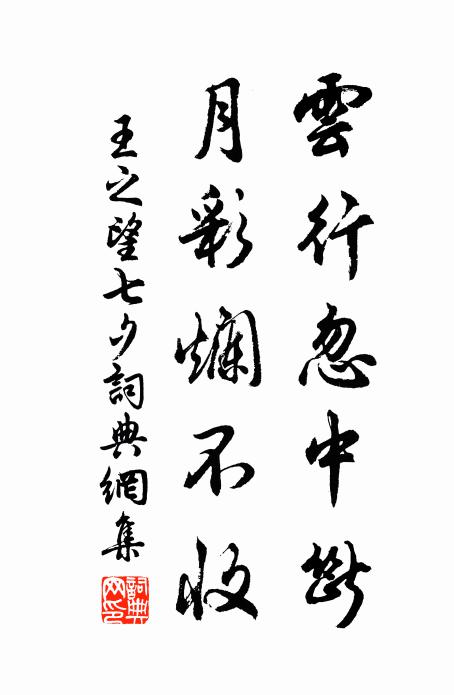 雲行忽中斷
月彩爛不收
王之望七夕詞典網集
詞典网印